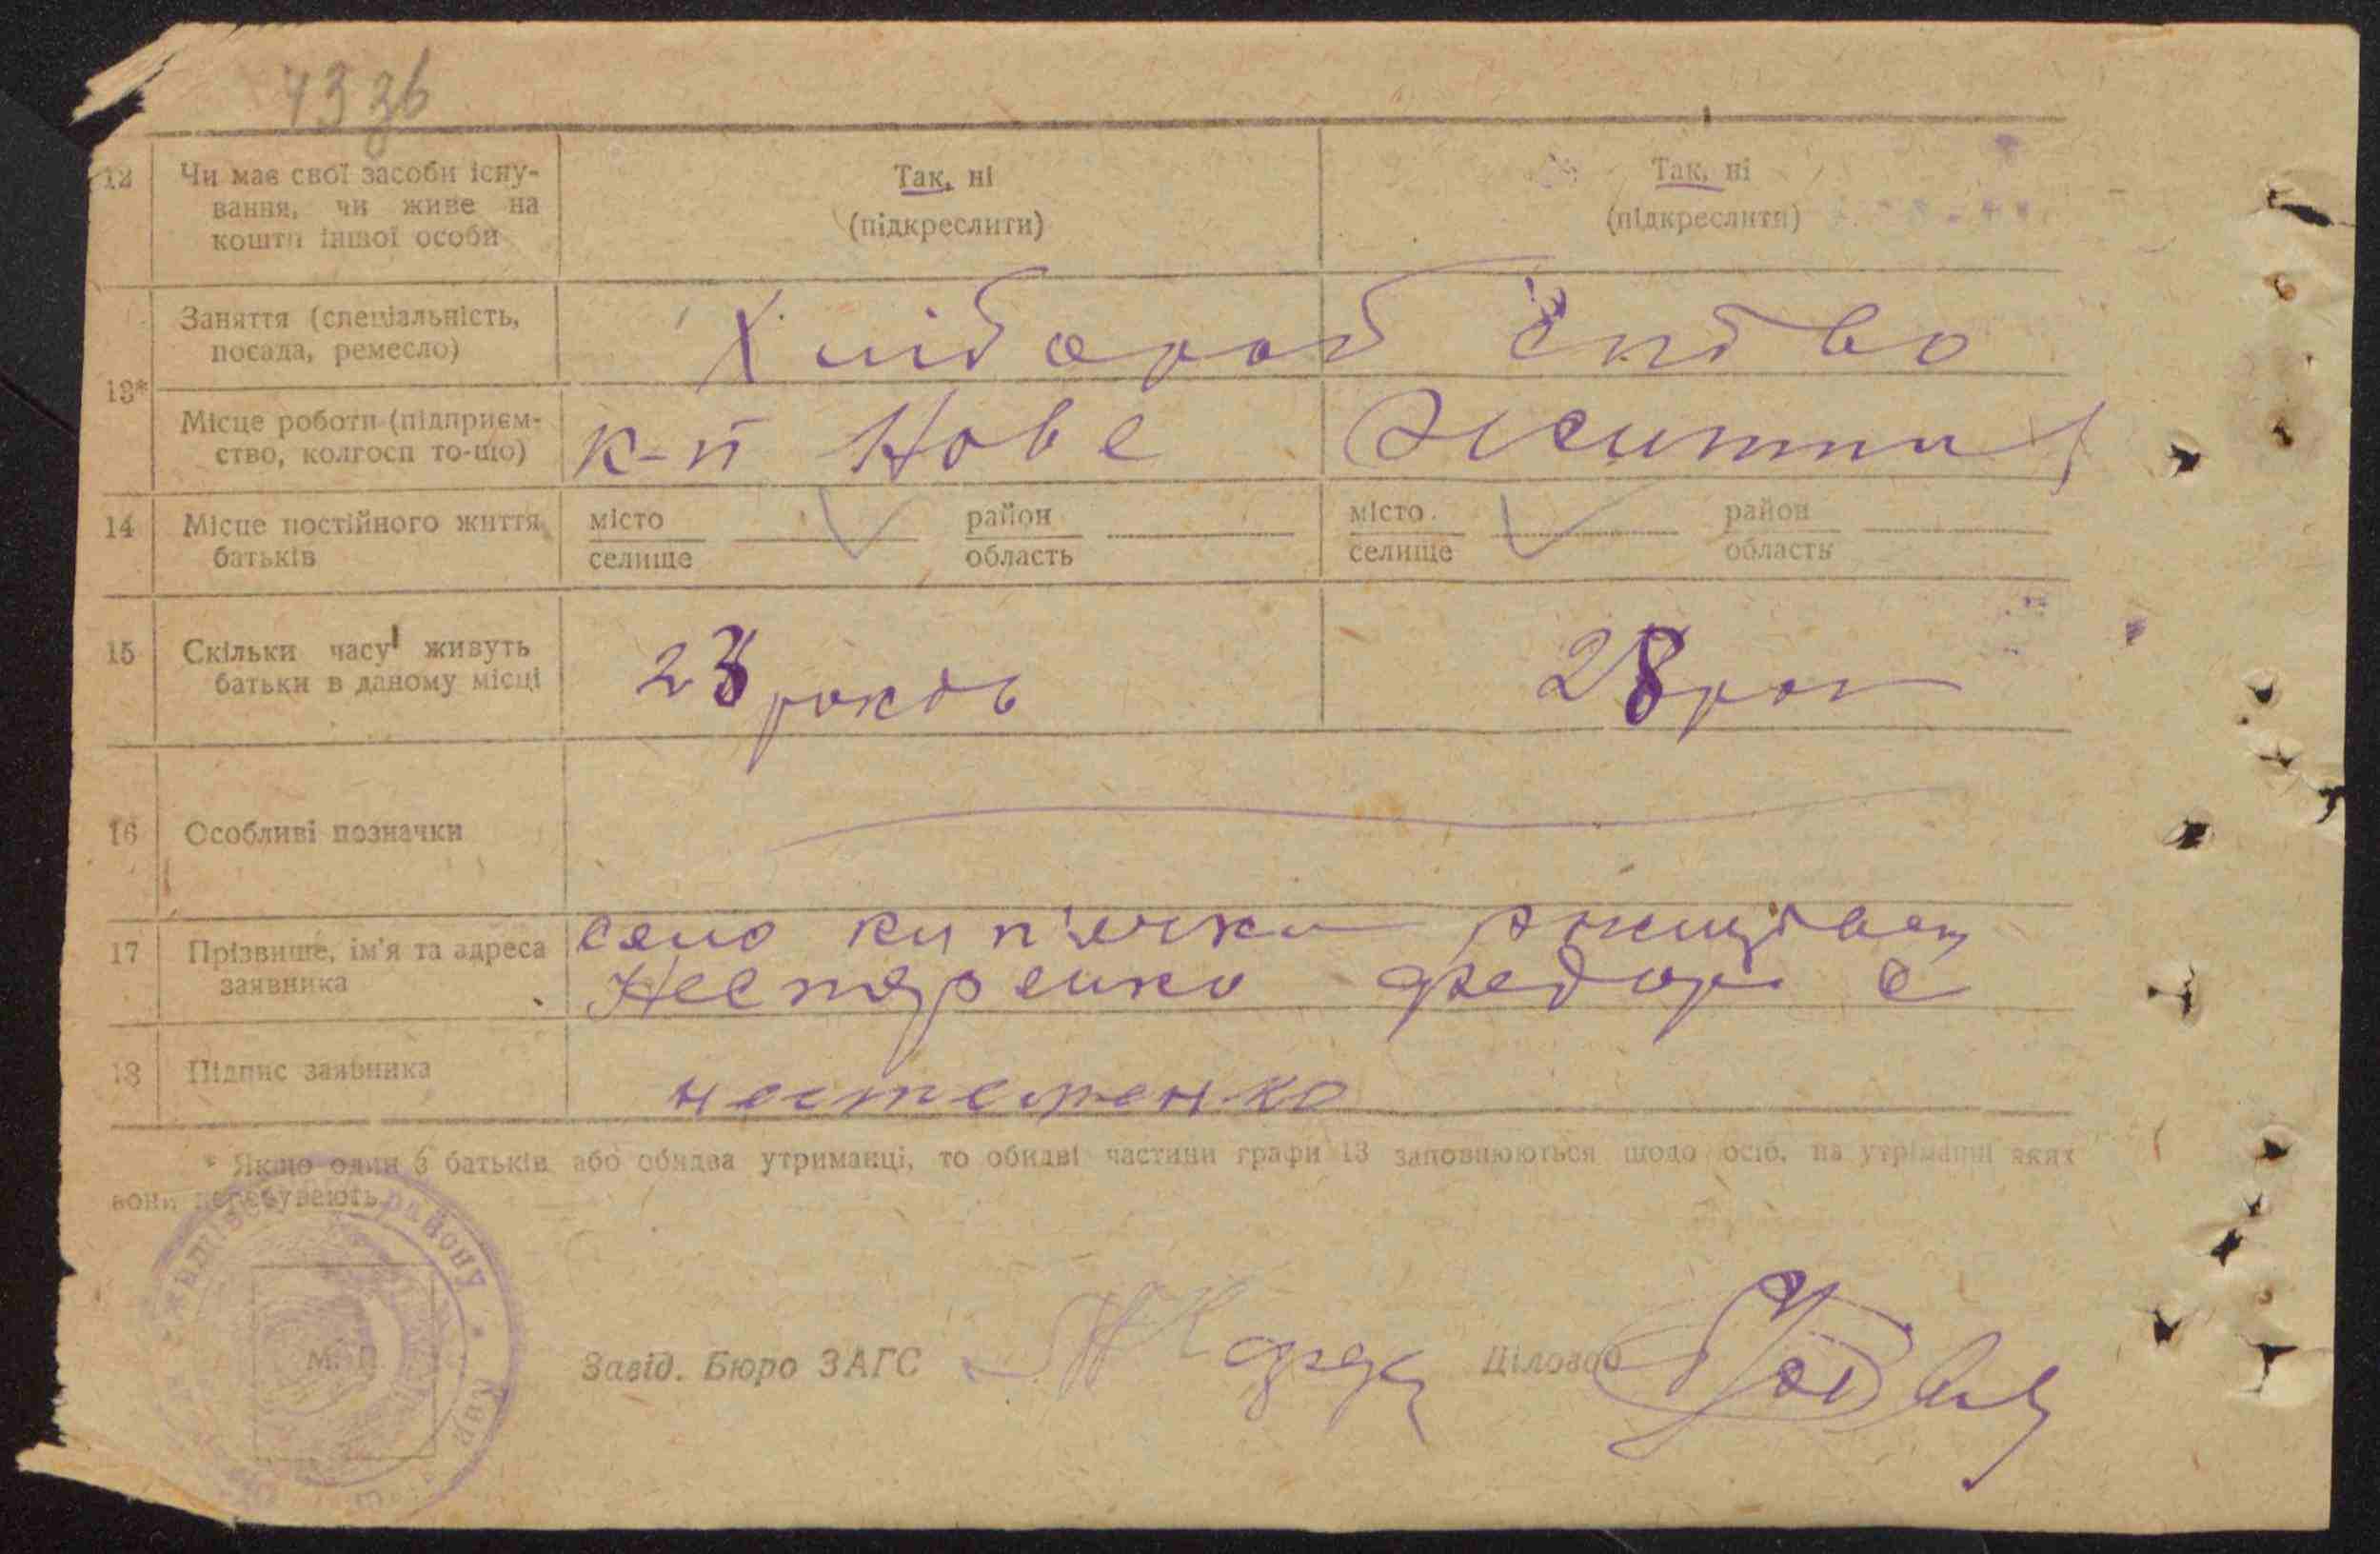 43 зв
12 Чи має свої засоби існу-
вання, чи живе на
кошти іншої особи
Так, ні
(підкреслити)
Так, ні
(підкреслити)
13*
Заняття (спеціальність,
посада, ремесло)
Хліборобство
Місце роботи (підприєм-
ство, колгосп то-що)
к-п Нове Життя
14 Місце постійного життя
батьків
місто район
селище область
місто район
селище область
15 Скільки часу живуть
батьки в даному місці
23 років
28 рок
16 Особливі позначки
17 Прізвище, ім'я та адреса
заявника
село
Нестеренко Федор С
18 Підпис заявника
нестеренко
* Якщо один з батьків або обидва утриманці, то обидві частини графи 13 заповнюються щодо осіб, на утриманні яких
вони перебувають.
району
М. П.
Завід. Бюро ЗАГС
Діловод